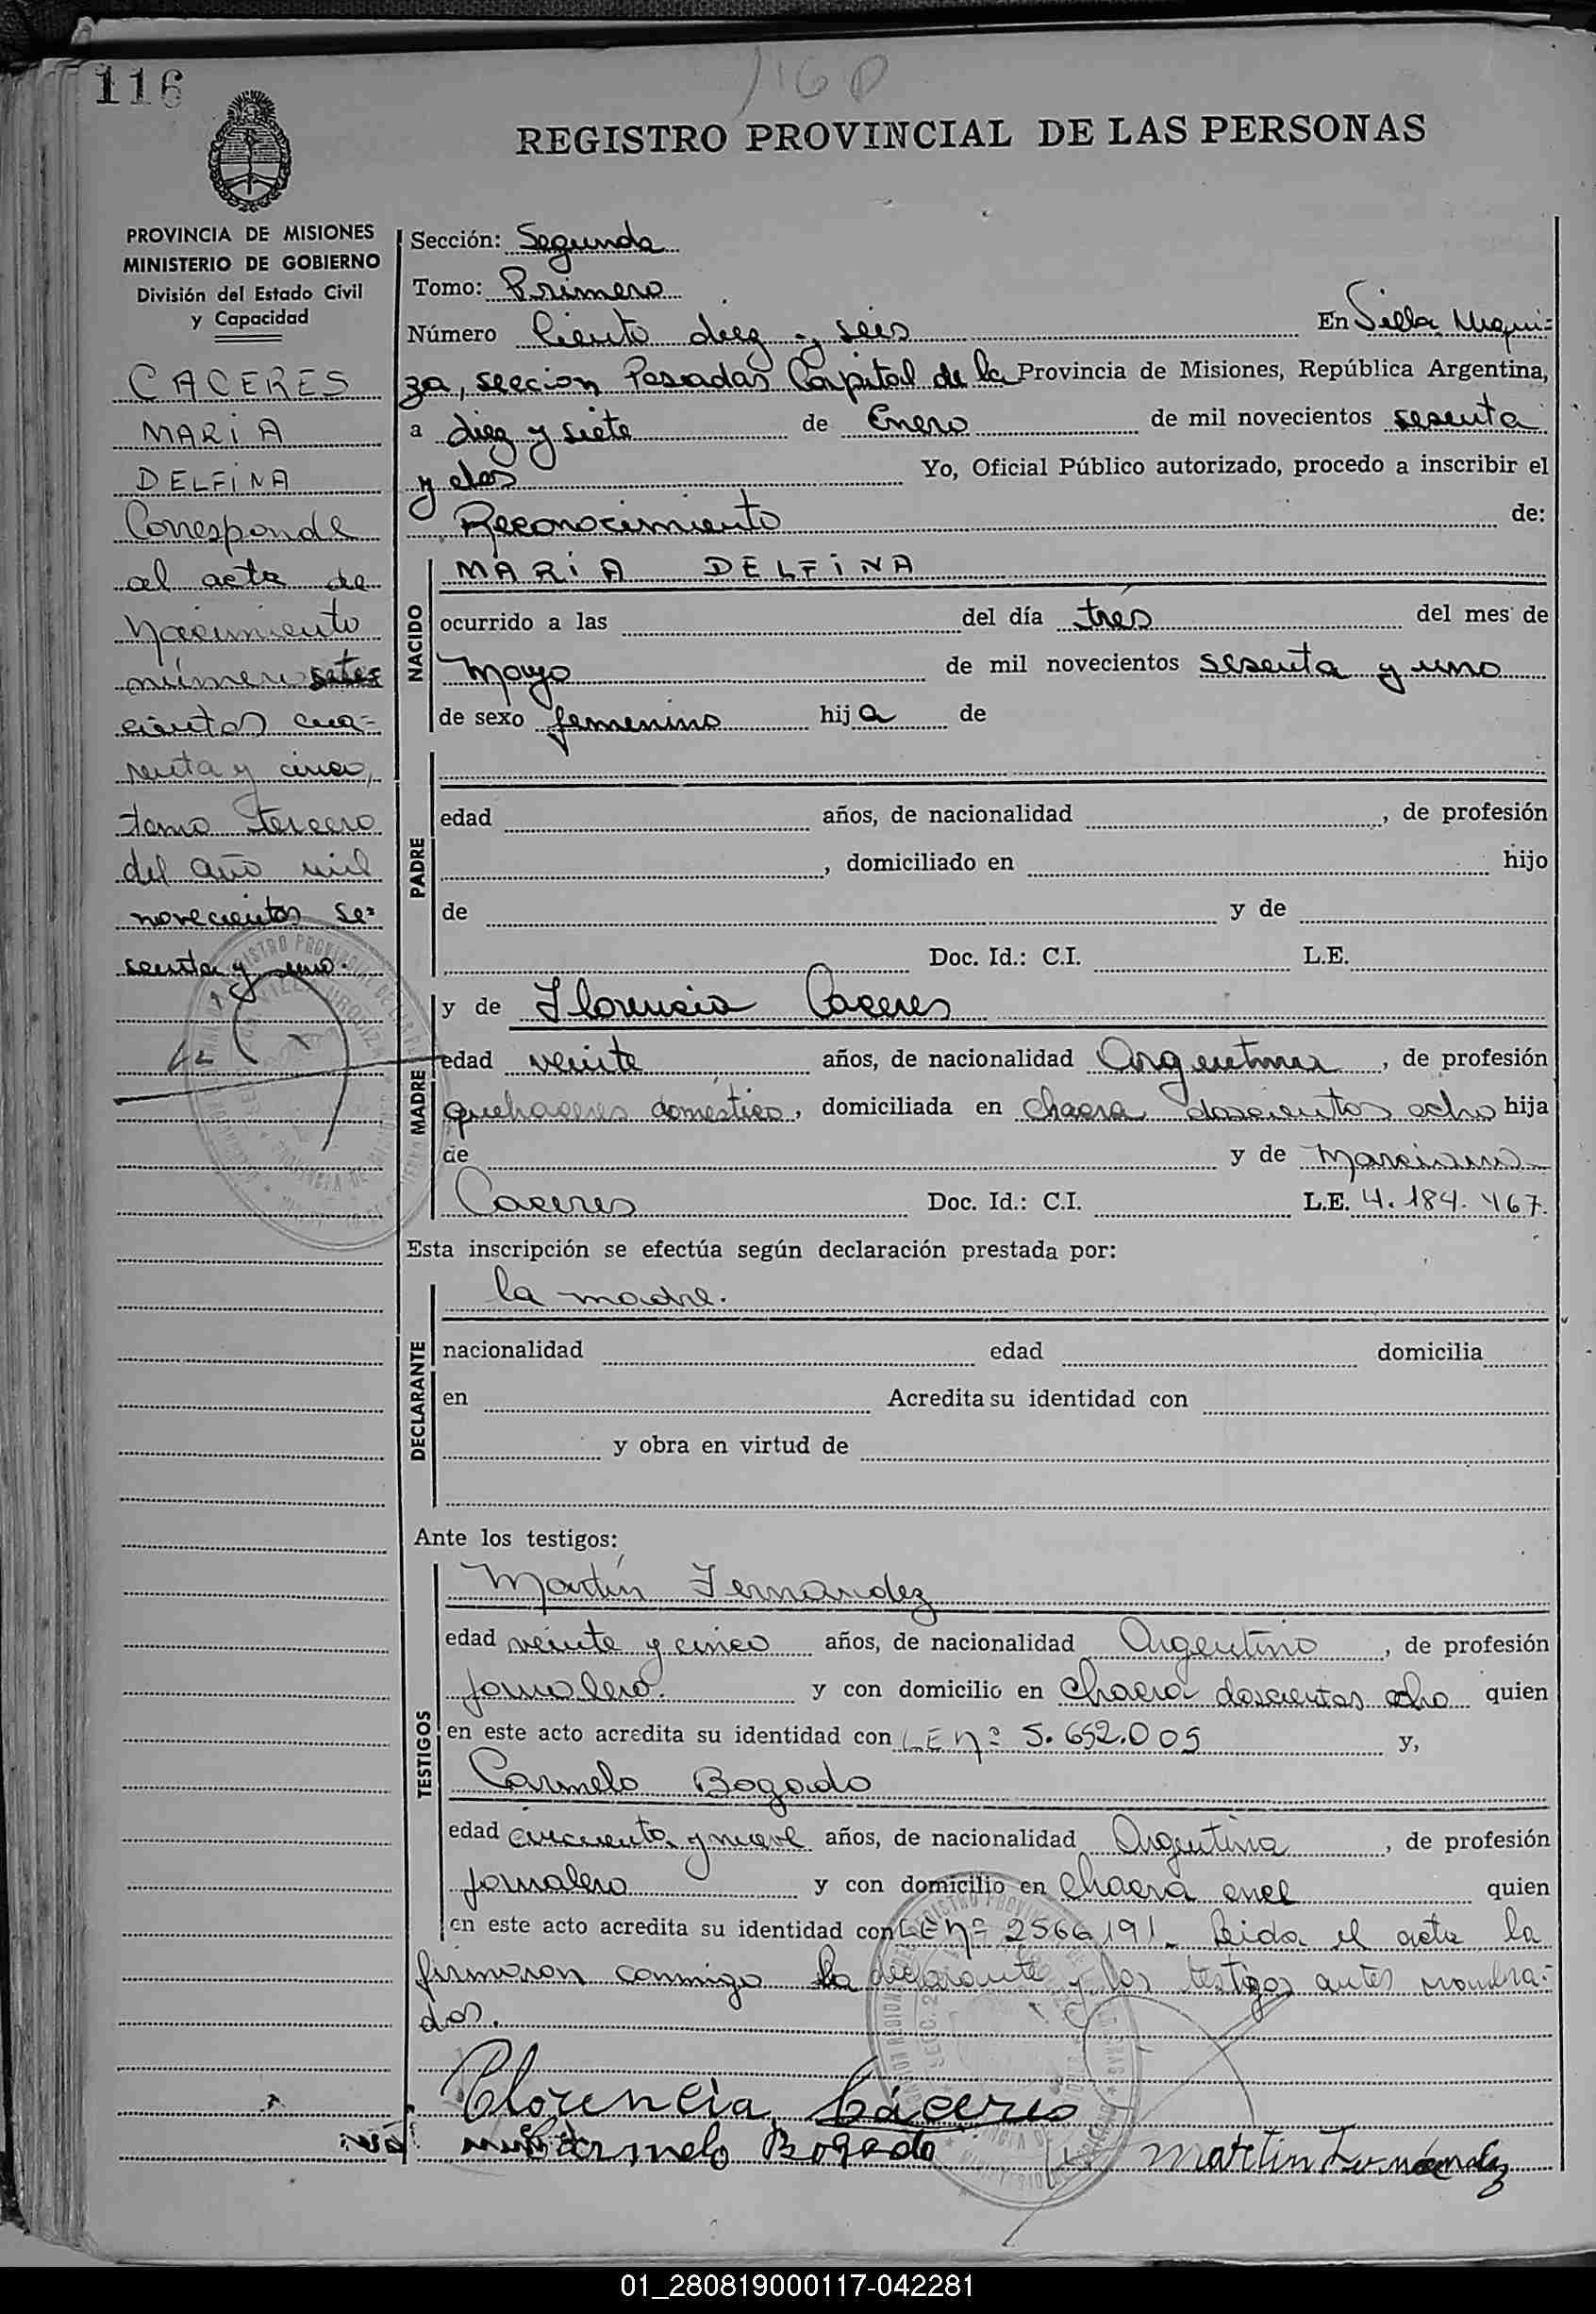 116
116 D
REGISTRO PROVINCIAL DE LAS PERSONAS
PROVINCIA DE MISIONES
MINISTERIO DE GOBIERNO
División del Estado Civil
y Capacidad
CACERES
MARIA
DELFINA
Corresponde
al acta de
Nacimiento
número sete=
cientos cua=
renta y cinco,
tomo tercero
del año mil
novecientos se=
senta y uno.
Sección: Segunda
Tomo: Primero
Número Ciento diez y seis En Villa Urqui=
za, seccion Posadas Capital de la Provincia de Misiones, República Argentina,
a diez y siete de Enero de mil novecientos sesenta
y dos Yo, Oficial Público autorizado, procedo a inscribir el
Reconocimiento de:
NACIDO
MARIA DELFINA
ocurrido a las del día tres del mes de
Mayo de mil novecientos sesenta y uno
de sexo femenino hija de
PADRE
edad años, de nacionalidad , de profesión
, domiciliado en hijo
de y de
Doc. Id.: C.I. L.E.
MADRE
y de Florencia Caceres
edad veinte años, de nacionalidad Argentina, de profesión
quehaceres domestico, domiciliada en chacra doscientos ocho hija
de y de Marciana
Caceres Doc. Id.: C.I. L.E. 4.184.467.
Esta inscripción se efectúa según declaración prestada por:
DECLARANTE
la madre.
nacionalidad edad domicilia
en Acredita su identidad con
y obra en virtud de
Ante los testigos:
TESTIGOS
Martín Fernandez
edad veinte y cinco años, de nacionalidad Argentino, de profesión
jornalero. y con domicilio en chacra doscientos ocho quien
en este acto acredita su identidad con LE nº 5.652.005 y,
Carmelo Bogado
edad cincuenta y nueve años, de nacionalidad Argentina, de profesión
jornalero y con domicilio en chacra quien
en este acto acredita su identidad con LE nº 2566191. Leida el acta la
firmaron conmigo la declarante y los testigos antes nombra=
dos.
Florencia Cáceres
Carmelo Bogado Martin Fernández
01_280819000117-042281